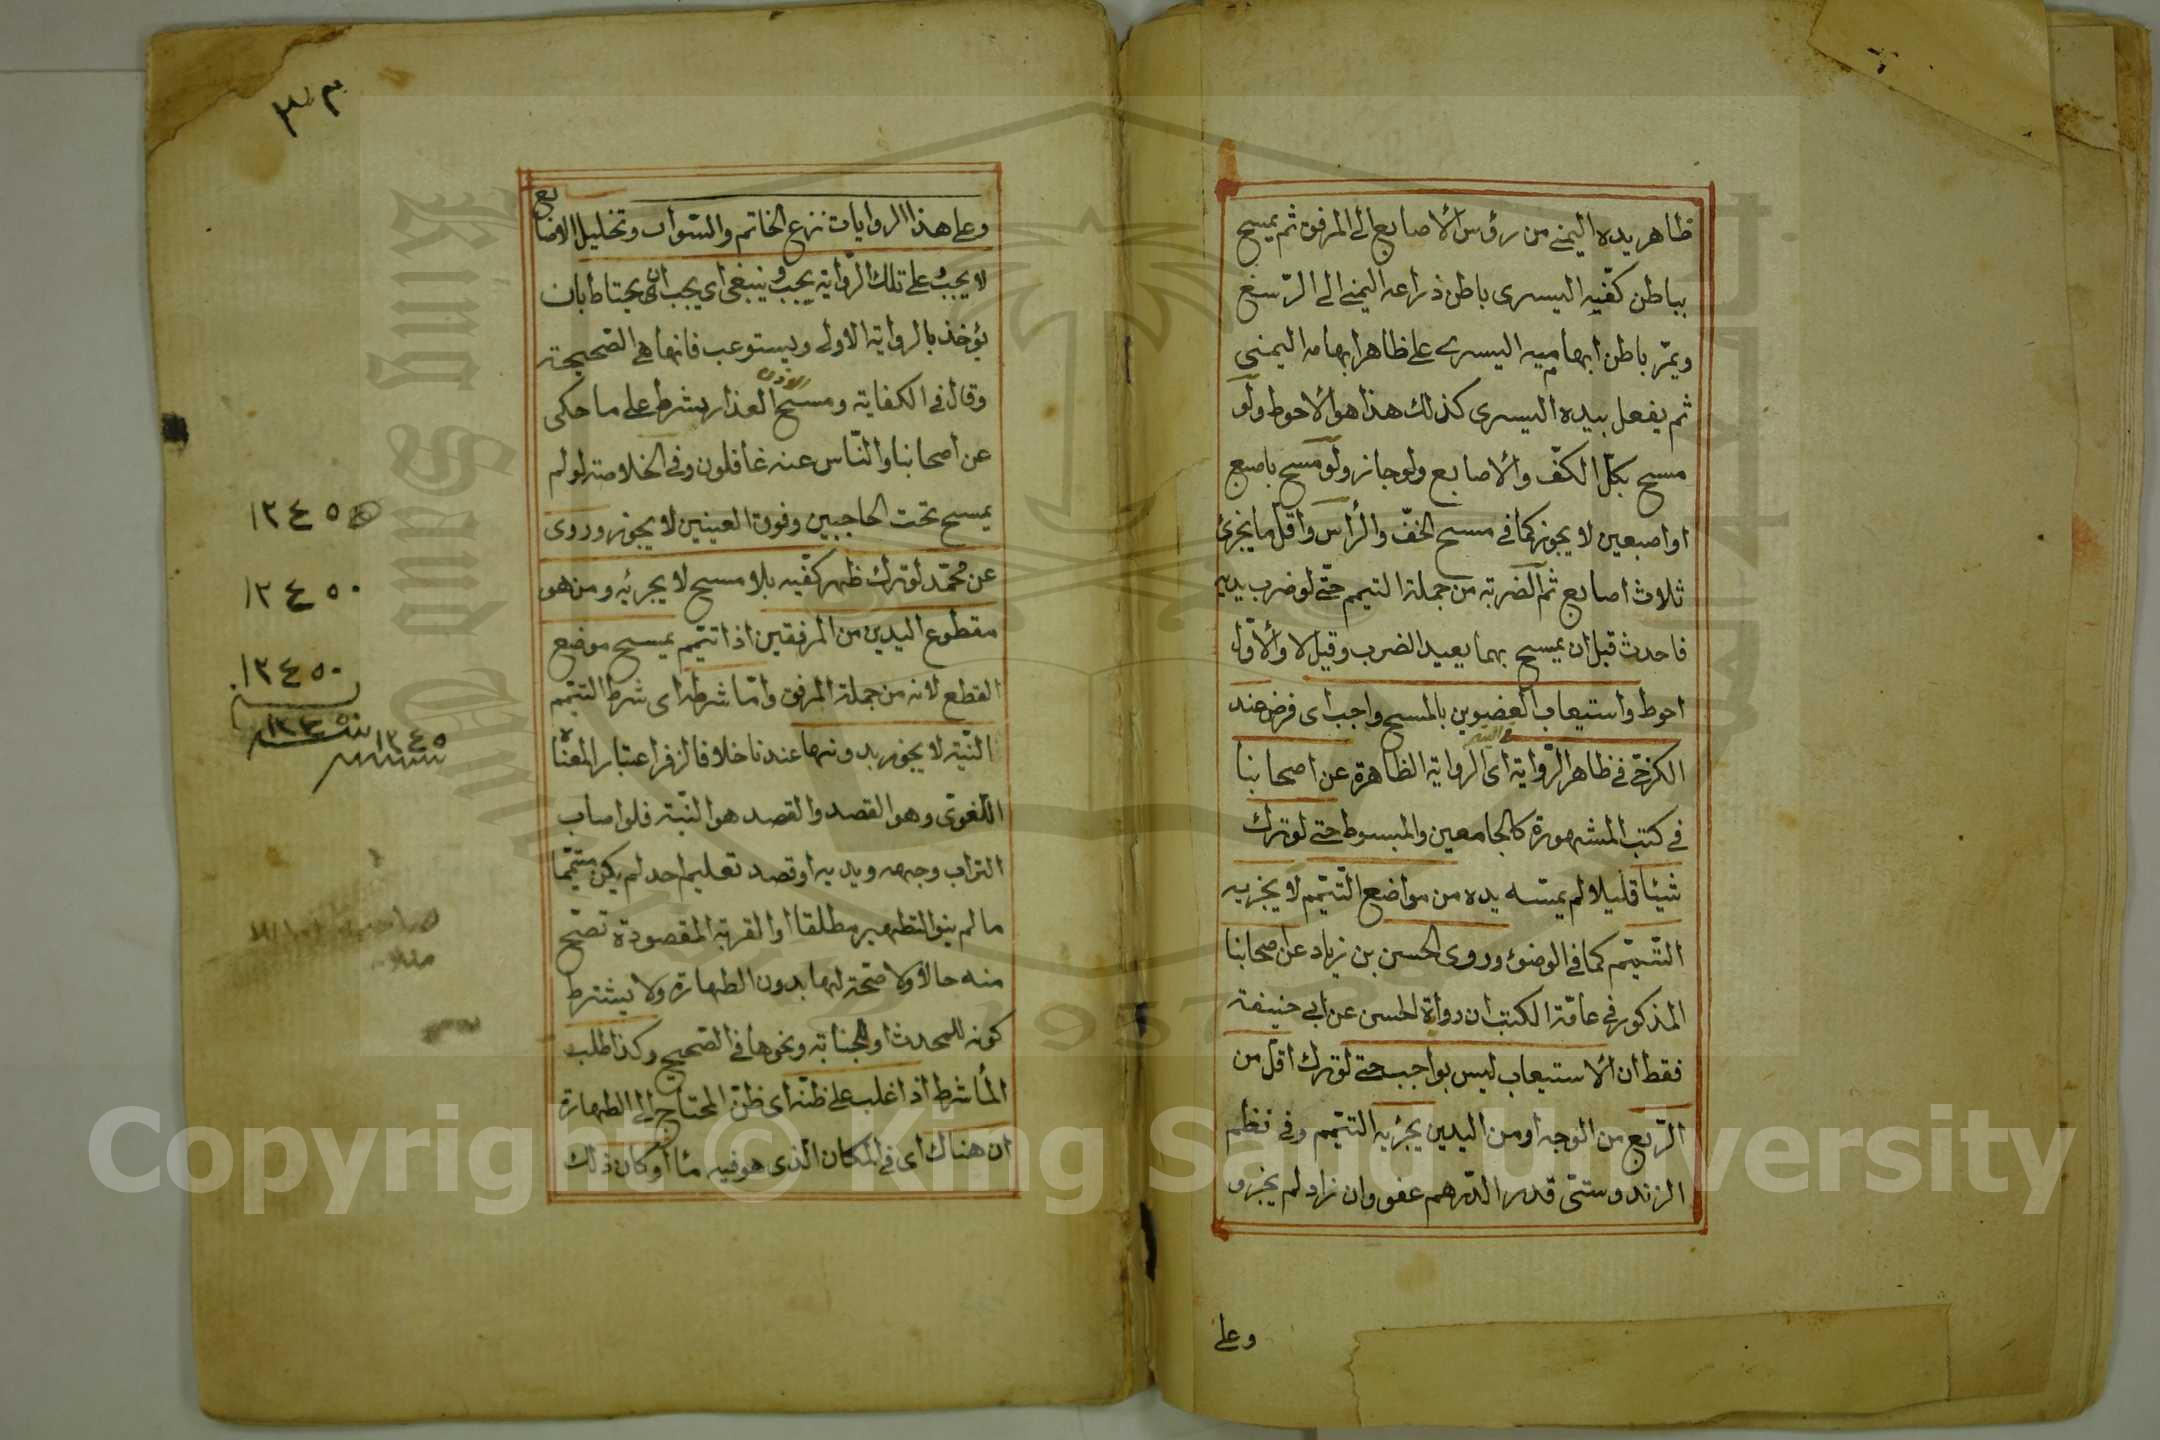 ظاهر يده اليمنى من رؤس الاصابع الى المرفق ثم يمسح
بباطن كفّيه اليسرى باطن ذراعه اليمنى الى الرّسغ
ويمرّ باطن ابهاميه اليسرى على ظاهر ابهامه اليمنى
ثم يفعل بيده اليسرى كذلك هذا هو الاحوط ولو
مسح بكل الكفّ والاصابع ولو جاز ولو مسح باصبع
او اصبعين لا يجوز كما في مسح الخفّ والرأس واقل ما يجزئ
ثلاث اصابع ثم الضربة من جملة التيمم حتى لو ضرب يديه
فاحدث قبل ان يمسح بهما يعيد الضرب وقيل لا والاوّل
احوط واستيعاب العضوين بالمسح واجب اى فرض عند
الكرخى في ظاهر الرّواية اى الرواية الظاهرة عن اصحابنا
في كتب المشهورة كالجامعين والمبسوط حتى لو ترك
شيئا قليلا لم يمسّه يده من مواضع التّيمّم لا يجزيه
التّيمّم كما في الوضوء وروى الحسن بن زياد عن اصحابنا
المذكور في عامّة الكتب ان رواة الحسن عن ابى حنيفة
فقط ان الاستيعاب ليس بواجب حتى لو ترك اقلّ من
الرّبع من الوجه او من اليدين يجزيه التيمّم وفي نظم
الزندوستىّ قدر الدّرهم عفو وان زاد لم يجز و
وعلى
٣٣
وعلى هذا الروايات نزع الخاتم والسّوار وتخليل الاصابع
لا يجب على تلك الرّواية يجب وينبغى اى يجب ان يحتاط بان
يؤخذ بالرواية الاولى ويستوعب فانها هي الصحيحة
وقال في الكفاية ومسح العذار يشرط على ما حكى
عن اصحابنا والنّاس عنه غافلون وفي الخلاصة لو لم
يمسح تحت الحاجبين وفوق العينين لا يجوز وروى
عن محمّد لو ترك ظهر كفّيه بلا مسح لا يجزئه ومن هو
مقطوع اليدين من المرفقين اذا تيمّم يمسح موضع
القطع لانه من جملة المرفق وامّا شرطه اى شرط التيمّم
النّيّة لا يجوز بدونها عندنا خلافا لزفر اعتبار المعناه
اللّغوىّ وهو القصد والقصد هو النّية فلو اصاب
التراب وجهه ويديه او قصد تعليم احد لم يكن متيمّما
ما لم ينو التطهير مطلقا او القربة المقصودة تصّح
منه حالا ولا صحّة لها بدون الطهارة ولا يشترط
كونه للمحدث او للجنابة ونحوها في الصّحيح وكذا طلب
الماء شرط اذا غلب على ظنّه اى ظنّ المحتاج الى الطهارة
ان هناك اى في المكان الذى هو فيه مأ او كان ذلك
١٢٤٥
١٢٤٥٠
١٢٤٥٠
١٢٤٥
Copyright © King Saud University
1957